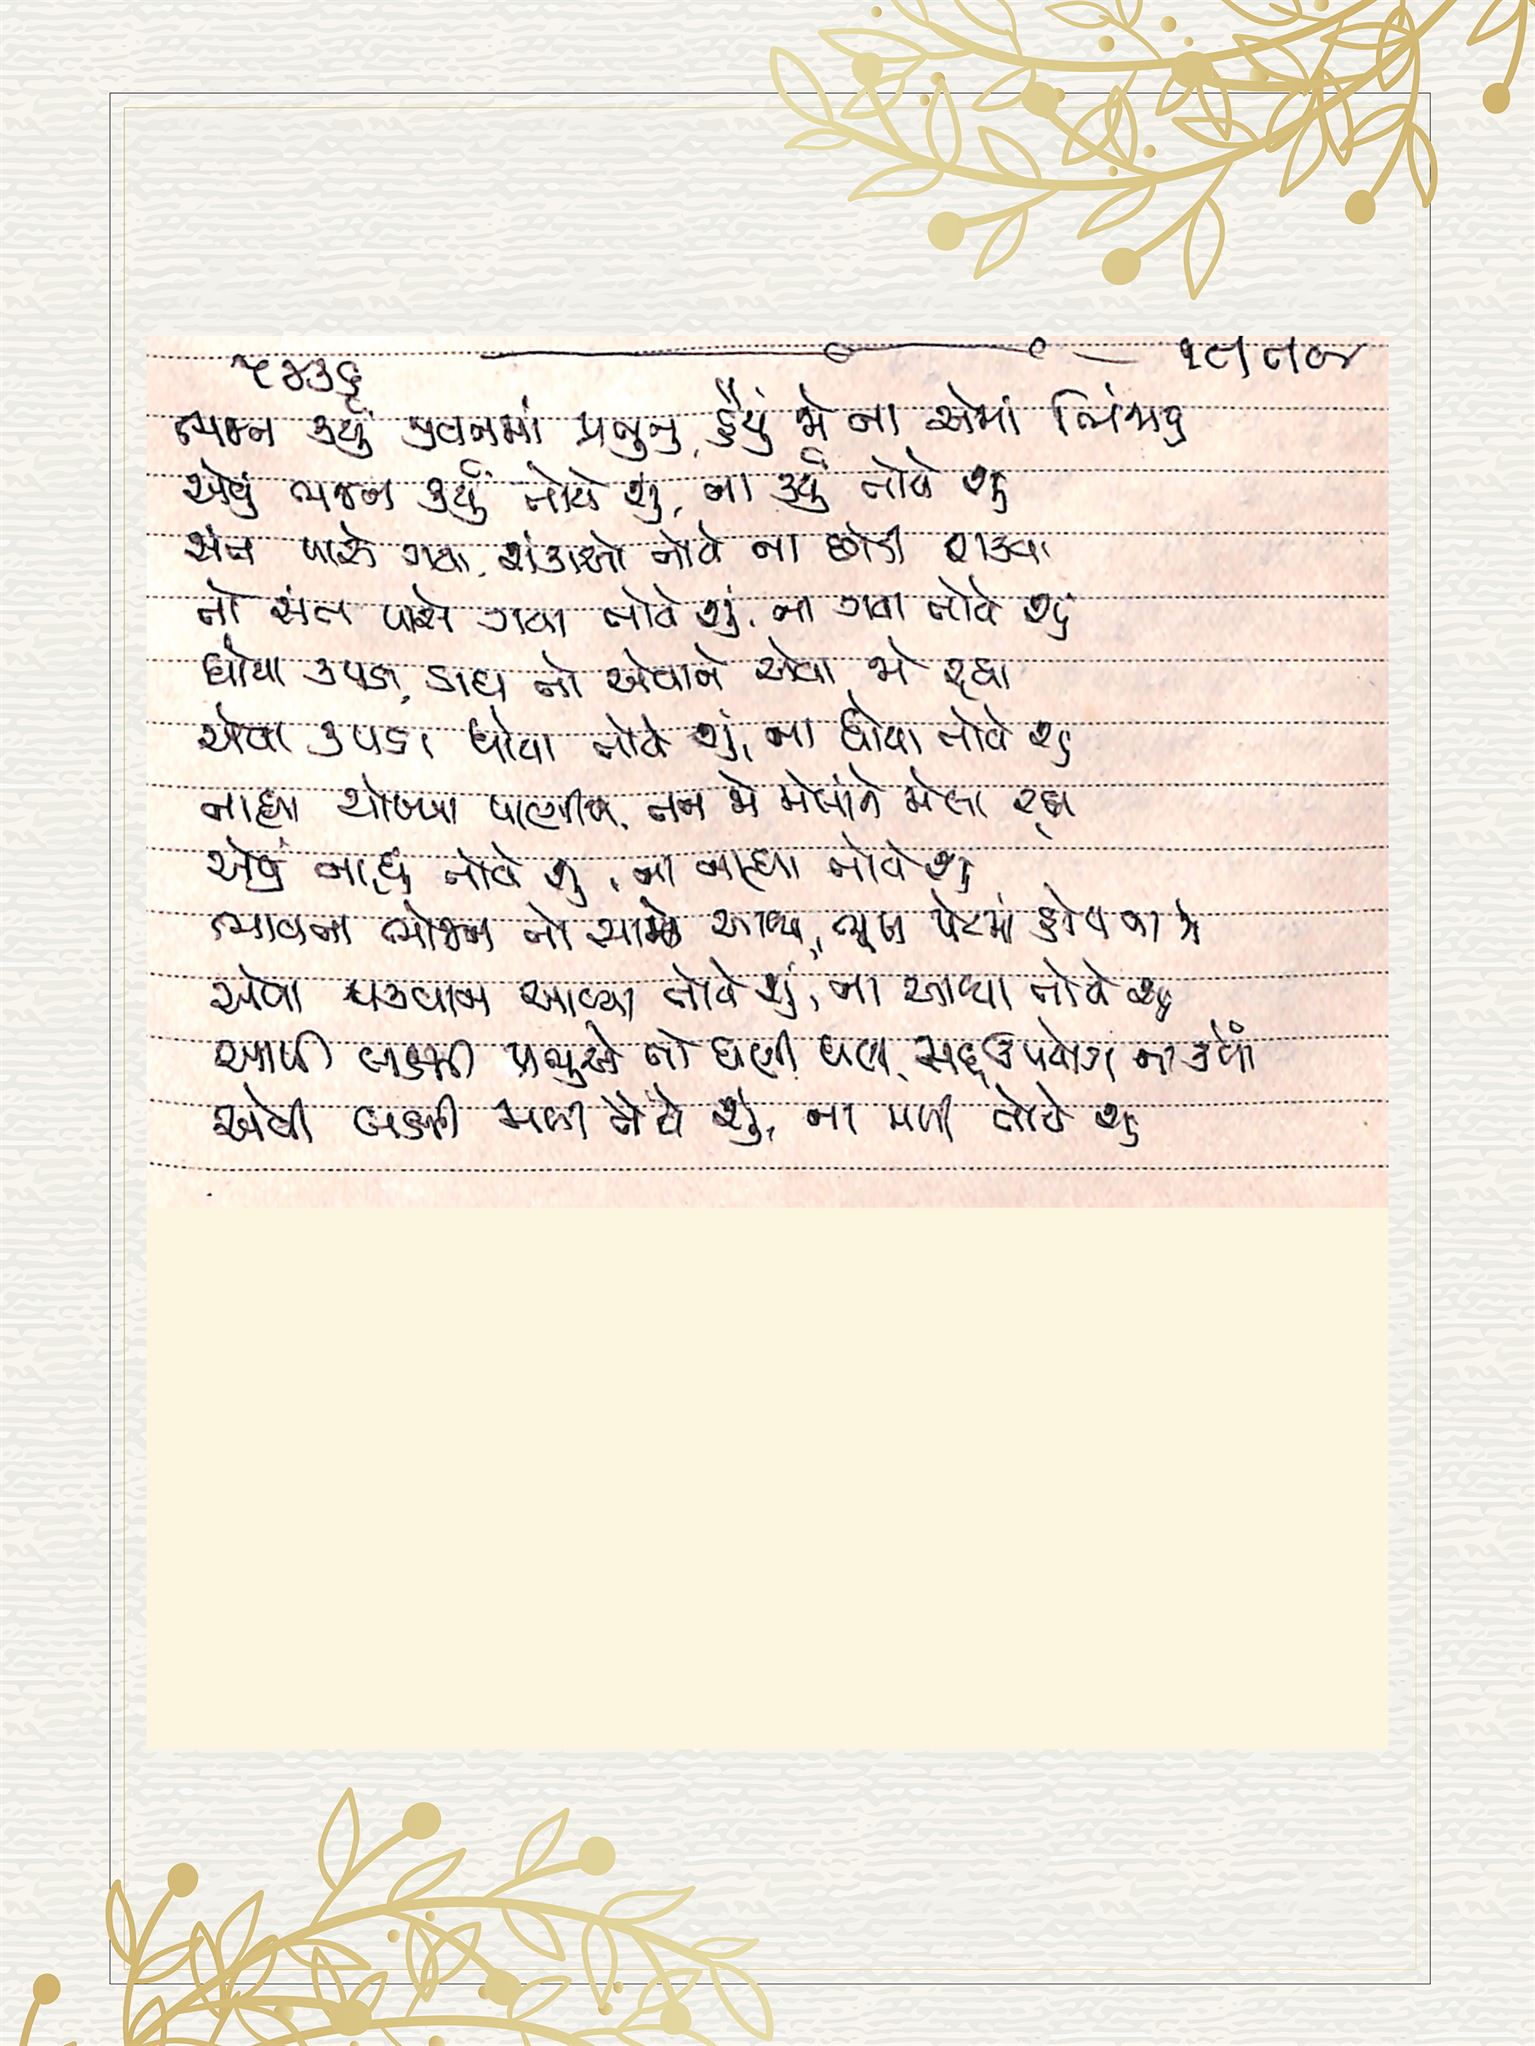 ૫૪૩૬
ભજન કર્યું જીવનમાં પ્રભુનુ, હૈયું જો ના એમાં ભિંજાયુ
એવું ભજન કર્યું તોયે શું, ના કર્યું તોયે શુ
સંત પાસે ગયા, શંકાઓ તોયે ના છોડી શક્યા
તો સંત પાસે ગયા તોયે શું, ના ગયા તોયે શુ
ધોયા કપડા, ડાઘ તો એવાને એવા જો રહ્યા
એવા કપડા ધોયા તોયે શું, ના ધોયા તોયે શુ
નાહ્યા ચોખ્ખા પાણીએ, તન જો મેલાંને મેલા રહ્યા
એવું નાહ્યું તોયે શુ, ના નાહ્યા તોયે શુ
ભાવતા ભોજન તો સામે આવ્યા, ભૂખ પેટમાં હોય ના જો
એવા પકવાન આવ્યા તોયે શું, ના આવ્યા તોયે શુ
આપી લક્ષ્મી પ્રભુએ તો ઘણી ઘણી, સદ્ઉપયોગ ના કર્યો
એવી લક્ષ્મી મળી તોયે શું, ના મળી તોયે શુ